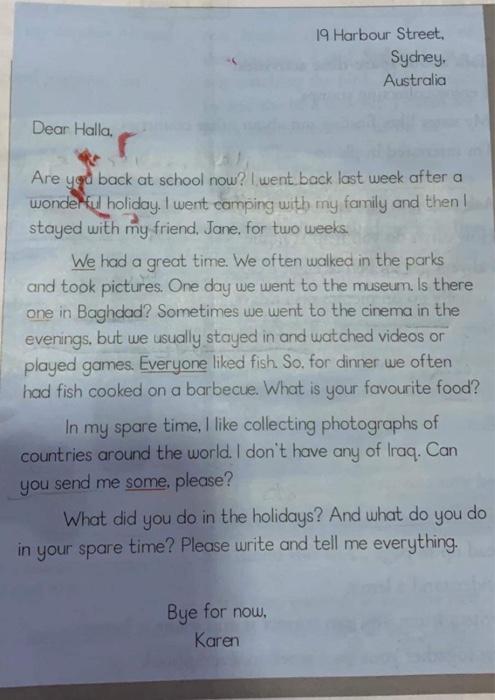 19 Harbour Street,
Sydney,
Australia
Dear Halla,
Are you back at school now? I went back last week after a
wonderful holiday. I went camping with my family and then I
stayed with my friend, Jane, for two weeks.
We had a great time. We often walked in the parks
and took pictures. One day we went to the museum. Is there
one in Baghdad? Sometimes we went to the cinema in the
evenings, but we usually stayed in and watched videos or
played games. Everyone liked fish. So, for dinner we often
had fish cooked on a barbecue. What is your favourite food?
In my spare time, I like collecting photographs of
countries around the world. I don't have any of Iraq. Can
you send me some, please?
What did you do in the holidays? And what do you do
in your spare time? Please write and tell me everything.
Bye for now,
Karen